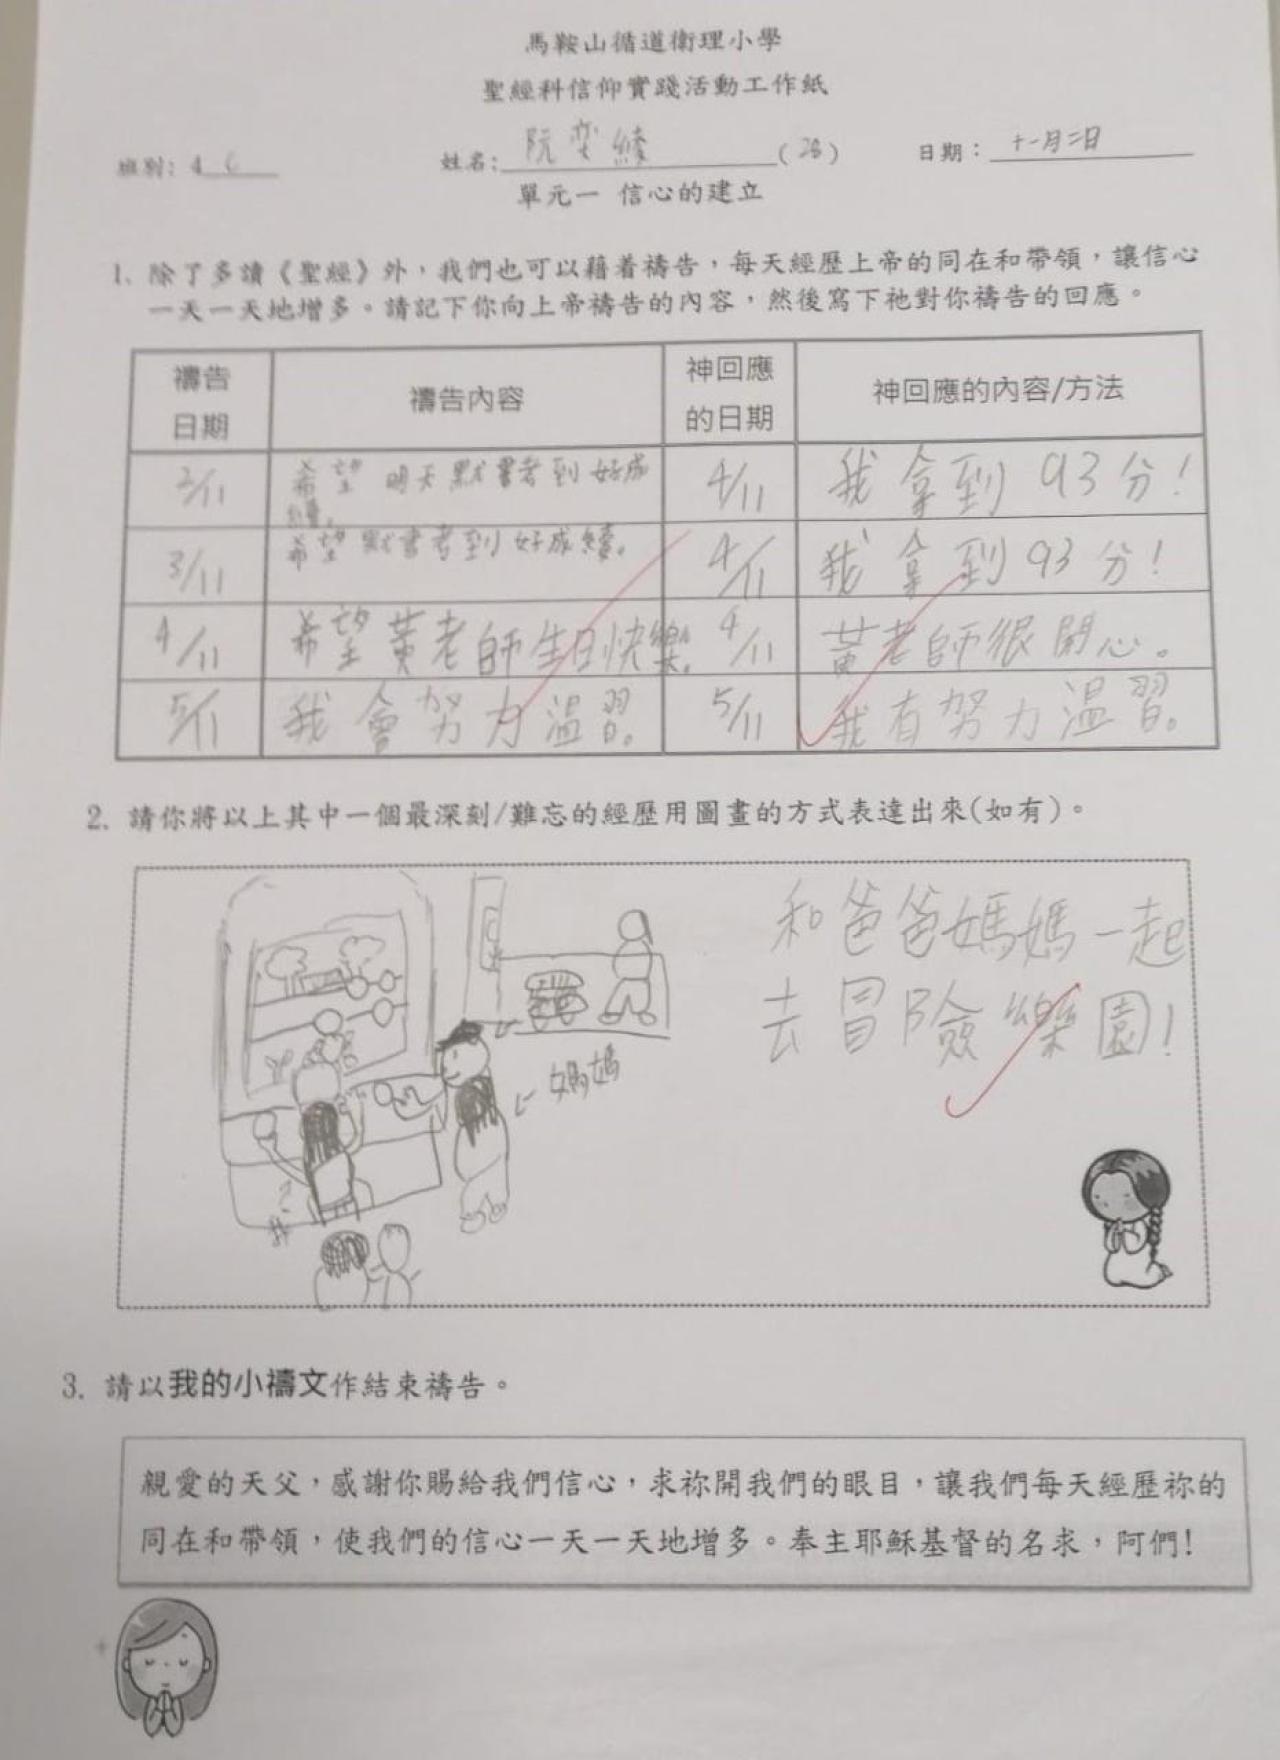 馬鞍山循道衛理小學
聖經科信仰實踐活動工作紙
班別: 4 C 姓名: 阮奕 (28) 日期: 十一月二日
單元一 信心的建立
1. 除了多讀《聖經》外，我們也可以藉着禱告，每天經歷上帝的同在和帶領，讓信心
一天一天地增多。請記下你向上帝禱告的內容，然後寫下祂對你禱告的回應。
禱告日期 禱告內容 神回應的日期 神回應的內容/方法
2/11 希望明天默書考到好成績。 4/11 我拿到93分!
3/11 希望默書考到好成績。 4/11 我拿到93分!
4/11 希望黃老師生日快樂。 4/11 黃老師很開心。
5/11 我會努力溫習。 5/11 我有努力溫習。
2. 請你將以上其中一個最深刻/難忘的經歷用圖畫的方式表達出來(如有)。
和爸爸媽媽一起
去冒險樂園!
媽媽
我
3. 請以我的小禱文作結束禱告。
親愛的天父，感謝你賜給我們信心，求祢開我們的眼目，讓我們每天經歷祢的
同在和帶領，使我們的信心一天一天地增多。奉主耶穌基督的名求，阿們!